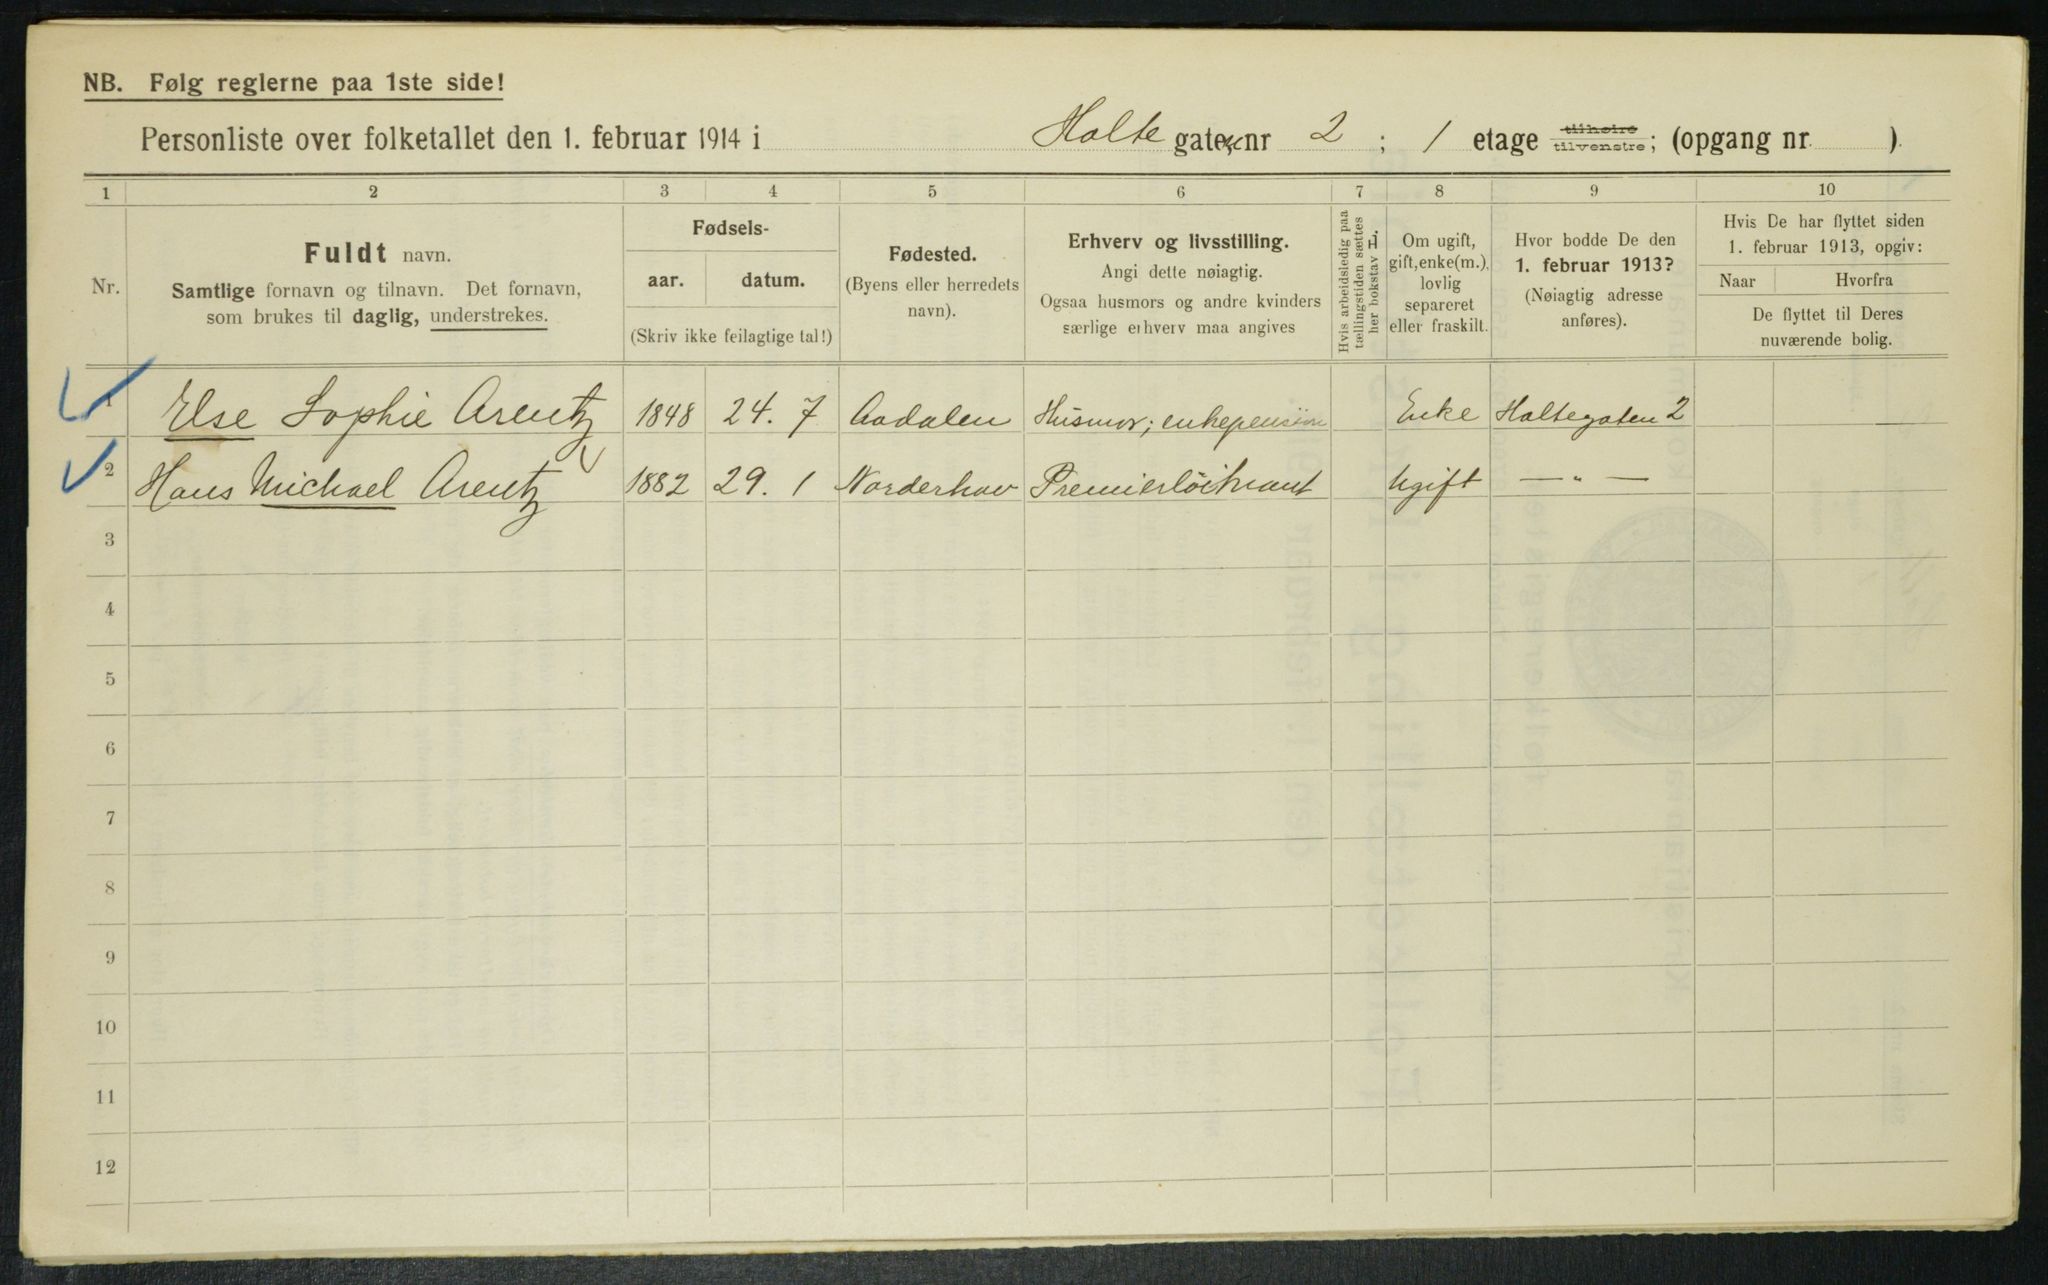 NB. Følg reglerne paa 1ste side!
Personliste over folketallet den 1. februar 1914 i Holte gaten nr 2; 1 etage tilhøire tilvenstre; (opgang nr. ).
1 2 3 4 5 6 7 8 9 10
Nr.
Fuldt navn.
Samtlige fornavn og tilnavn. Det fornavn,
som brukes til daglig, understrekes.
Fødsels-
aar. datum.
(Skriv ikke feilagtige tal!)
Fødested.
(Byens eller herredets
navn).
Erhverv og livsstilling.
Angi dette nøiagtig.
Ogsaa husmors og andre kvinders
særlige erhverv maa angives
Hvis arbeidsledig paa
tællingstiden sættes
her bokstav L.
Om ugift,
gift, enke(m.),
lovlig
separeret
eller fraskilt.
Hvor bodde De den
1. februar 1913?
(Nøiagtig adresse
anføres).
Hvis De har flyttet siden
1. februar 1913, opgiv:
Naar Hvorfra
De flyttet til Deres
nuværende bolig.
1 Else Sophie Arentz 1848 24. 7 Aadalen Husmor; enkepension Enke Holtegaten 2
2 Hans Michael Arentz 1882 29. 1 Norderhov Premierløitnant Ugift — „ —
3
4
5
6
7
8
9
10
11
12